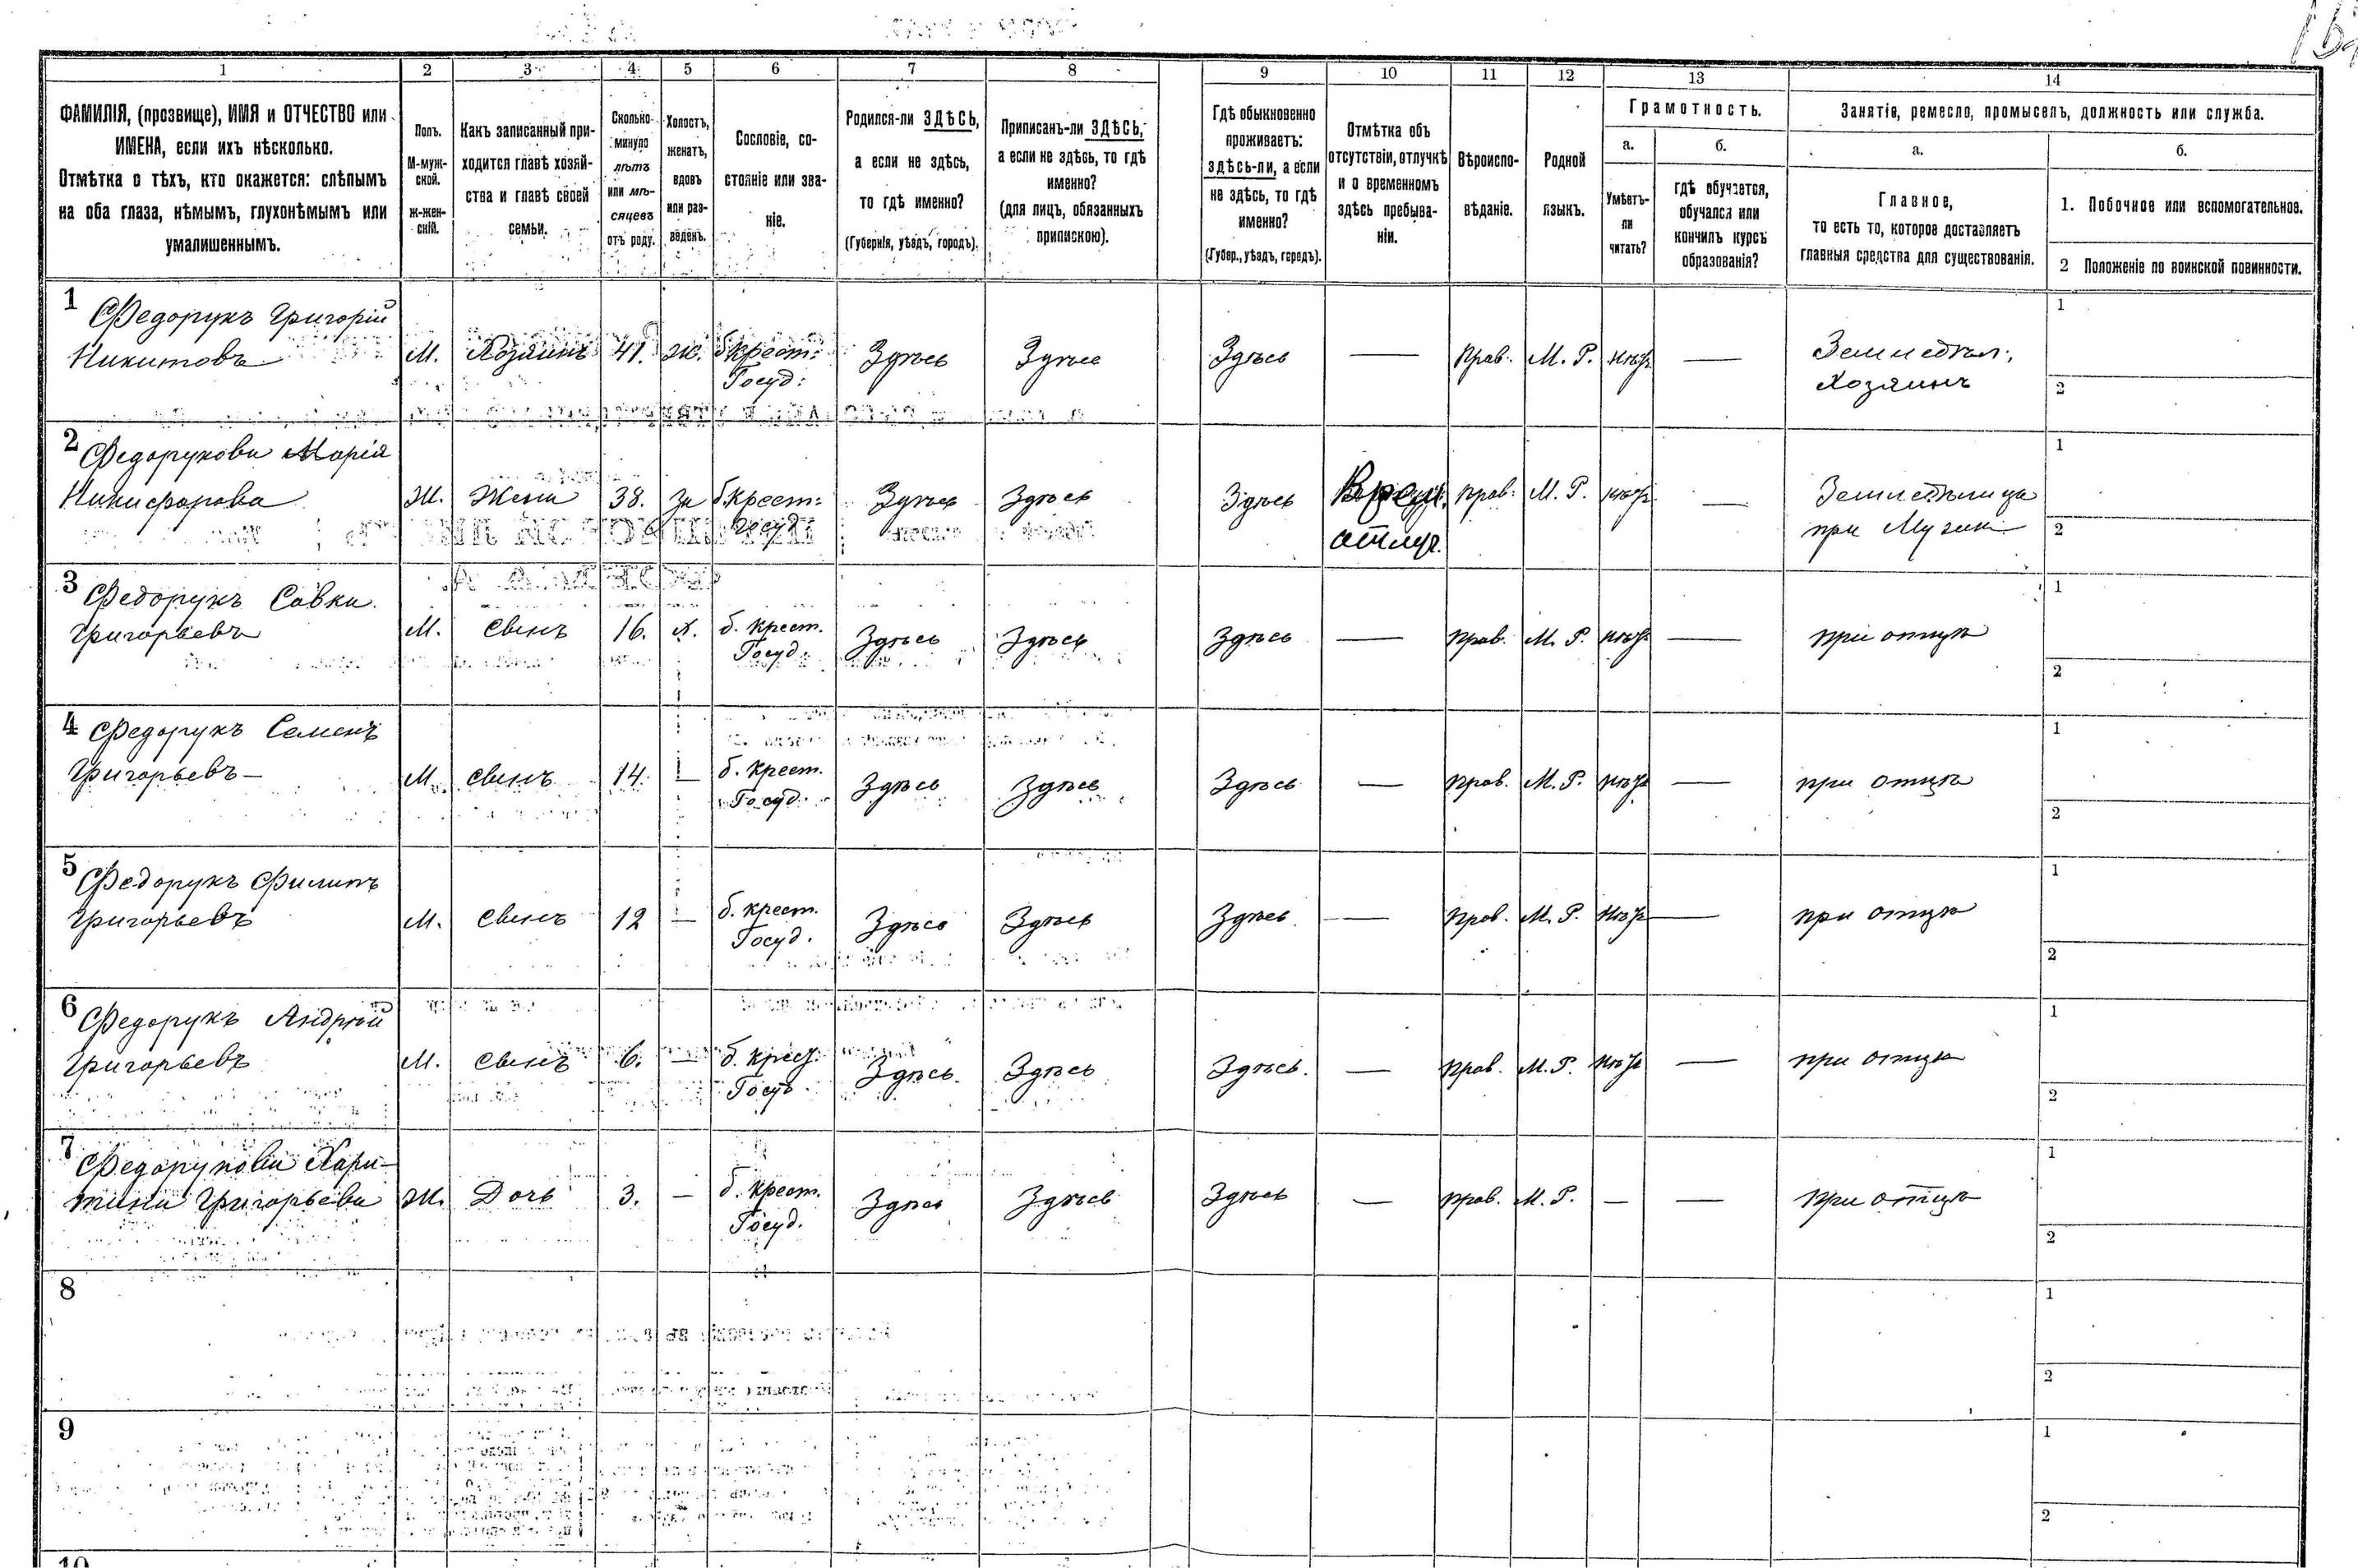 1 2 3 4 5 6 7 8 9 10 11 12 13 14
ФАМИЛІЯ, (прозвище), ИМЯ и ОТЧЕСТВО или
ИМЕНА, если ихъ нѣсколько.
Отмѣтка о тѣхъ, кто окажется: слѣпымъ
на оба глаза, нѣмымъ, глухонѣмымъ или
умалишеннымъ.
Полъ.
М-муж-
ской.
Ж-жен-
скій.
Какъ записанный при-
ходится главѣ хозяй-
ства и главѣ своей
семьи.
Сколько
минуло
лѣтъ
или мѣ-
сяцевъ
отъ роду.
Холостъ,
женатъ,
вдовъ
или раз-
веденъ.
Сословіе, со-
стояніе или зва-
ніе.
Родился-ли ЗДѢСЬ,
а если не здѣсь,
то гдѣ именно?
(Губернія, уѣздъ, городъ).
Приписанъ-ли ЗДѢСЬ,
а если не здѣсь, то гдѣ
именно?
(для лицъ, обязанныхъ
припискою).
Гдѣ обыкновенно
проживаетъ:
здѣсь-ли, а если
не здѣсь, то гдѣ
именно?
(Губер., уѣздъ, городъ).
Отмѣтка объ
отсутствіи, отлучкѣ
и о временномъ
здѣсь пребыва-
ніи.
Вѣроиспо-
вѣданіе.
Родной
языкъ.
Грамотность.
а.
Умѣетъ-
ли
читать?
б.
гдѣ обучается,
обучался или
кончилъ курсъ
образованія?
Занятіе, ремесло, промыселъ, должность или служба.
а.
Главное,
то есть то, которое доставляетъ
главныя средства для существованія.
б.
1. Побочное или вспомогательное.
2 Положеніе по воинской повинности.
1 Федорукъ Григорій
Никитовъ М. Хозяинъ 41. Ж. б крест: Здѣсь Здѣсь Здѣсь — Прав. М. Р. нѣт — Земледѣл; 1
Госуд: Хозяинъ 2
2 Федорукова Марія
Никифорова Ж. Жена 38. За б.крест: Здѣсь Здѣсь Здѣсь Врем. прав. М. Р. нѣт — Земледѣлица 1
Госуд отлуч. при Мужи 2
3 Федорукъ Савка
Григорьевъ М. Сынъ 16. Х. б. крест. Здѣсь Здѣсь Здѣсь — прав. М. Р. нѣт — при отцѣ 1
Госуд. 2
4 Федорукъ Семенъ
Григорьевъ М. Сынъ 14. — б. крест. Здѣсь Здѣсь Здѣсь — прав. М. Р. нѣт — при отцѣ 1
Госуд. 2
5 Федорукъ Филипъ
Григорьевъ М. Сынъ 12 — б. крест. Здѣсь Здѣсь Здѣсь — прав. М. Р. нѣт — при отцѣ 1
Госуд. 2
6 Федорукъ Андрѣй
Григорьевъ М. Сынъ 6. — б. крест. Здѣсь. Здѣсь Здѣсь. — прав. М. Р. нѣт — при отцѣ 1
Госуд. 2
7 Федорукова Хари-
тина Григорьева Ж. Дочь 3. — б. крест. Здѣсь Здѣсь Здѣсь — прав. М. Р. — — при отцѣ 1
Госуд. 2
8 1
2
9 1
2
10